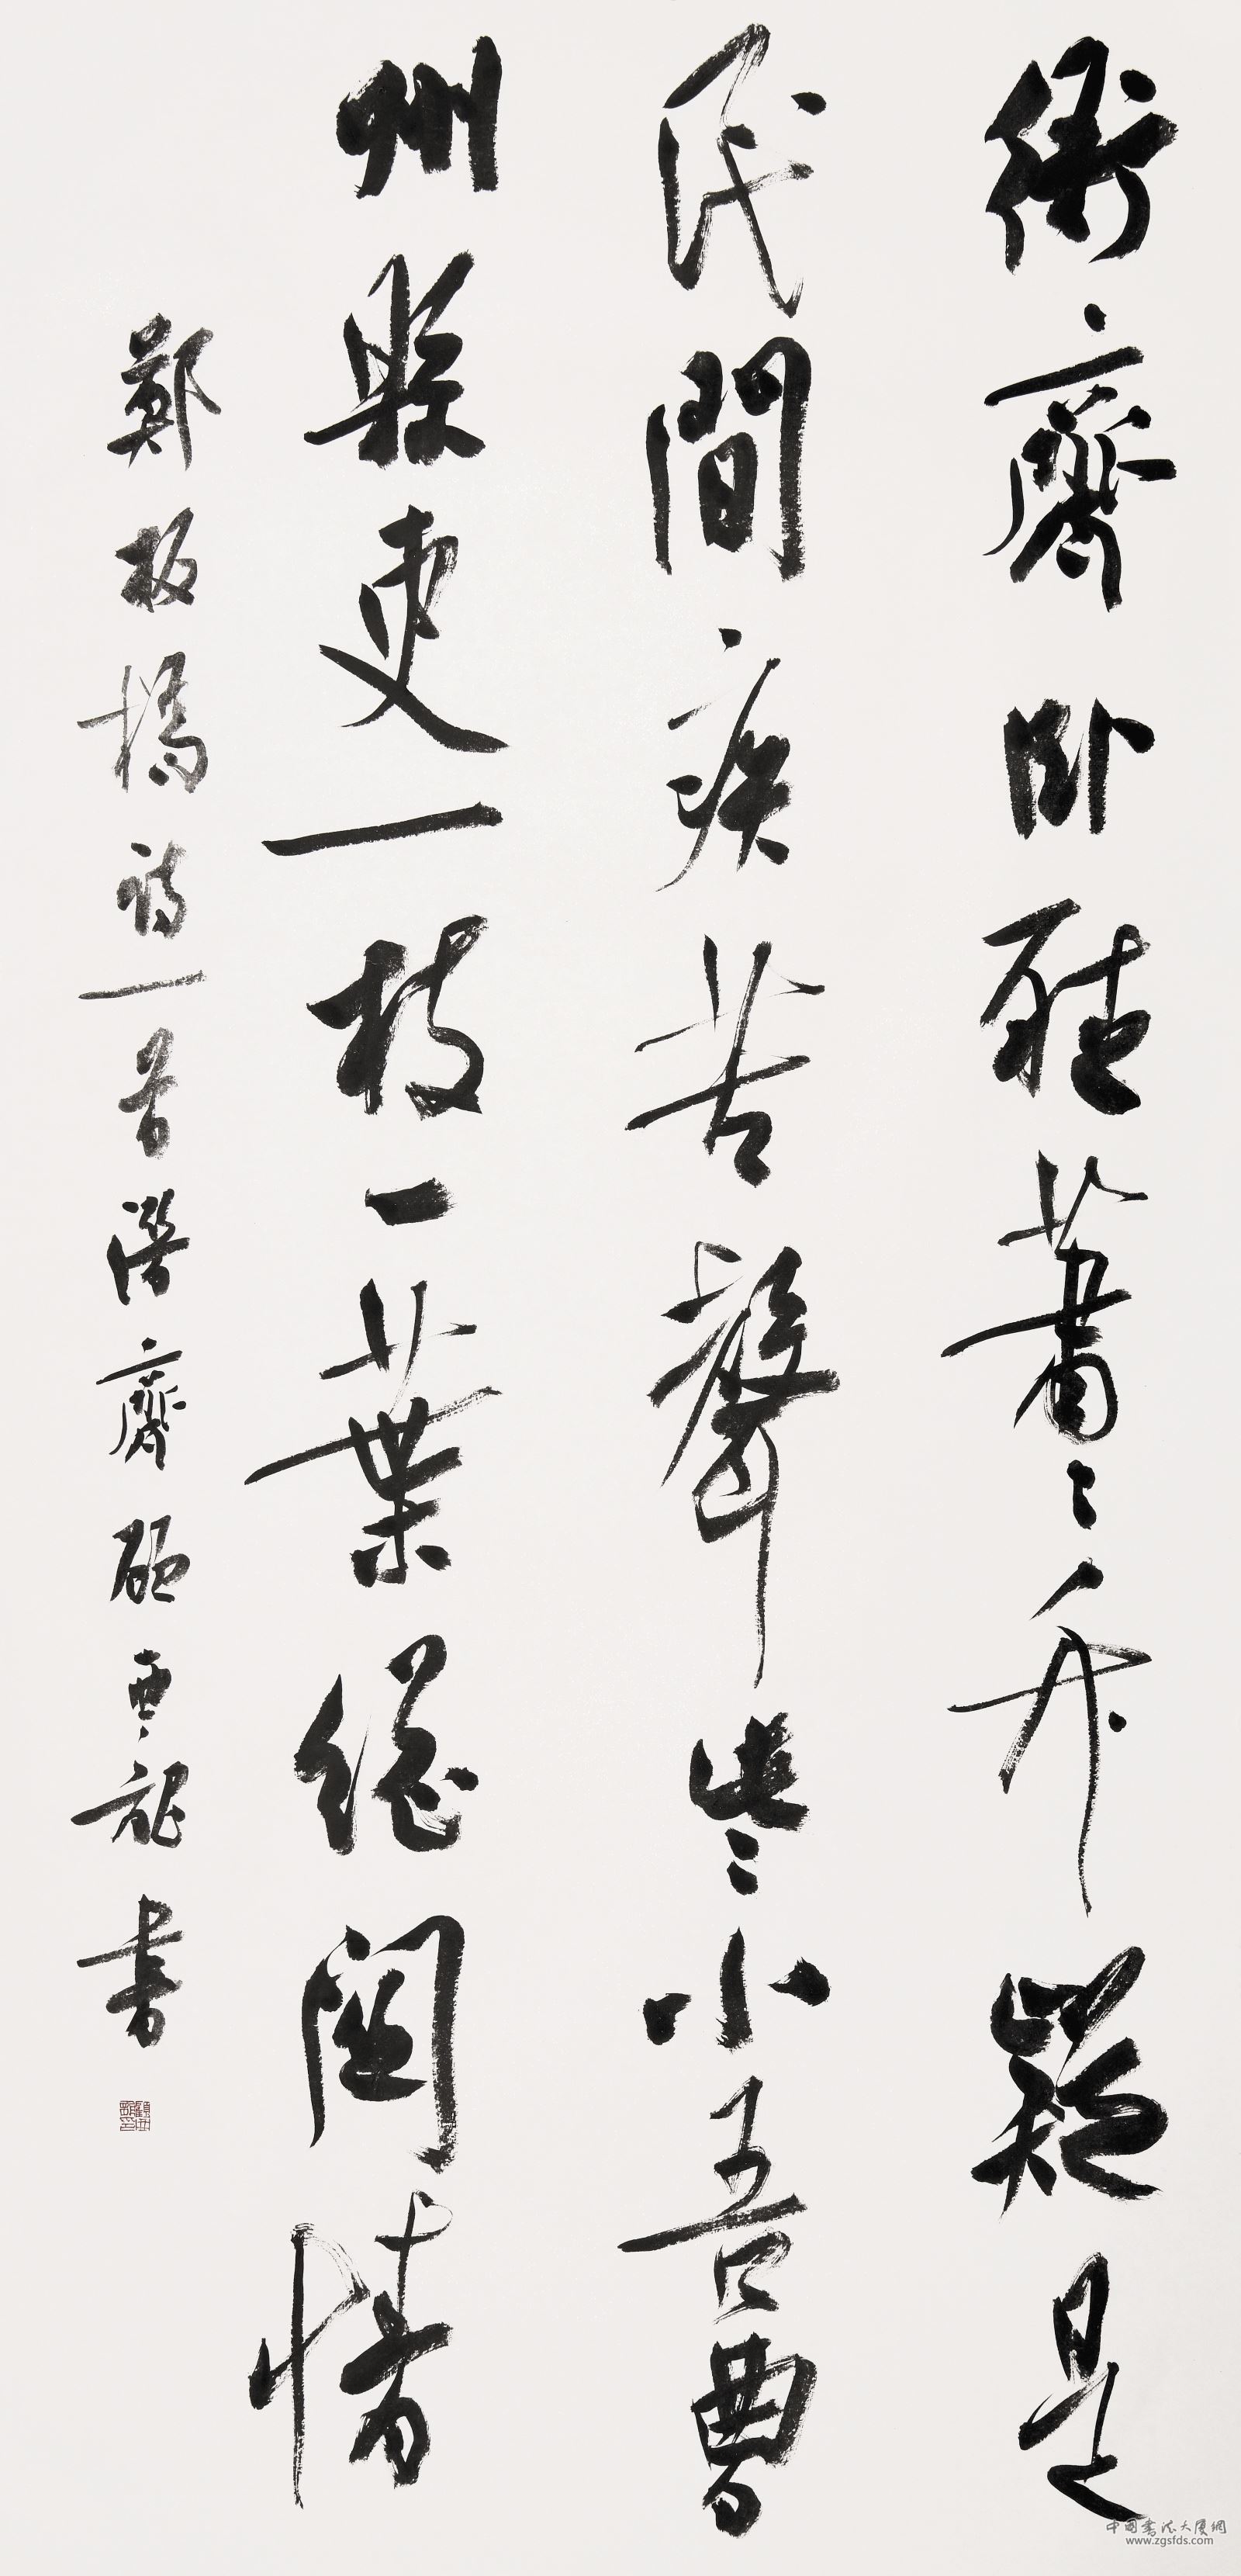 衙齋卧聽蕭〻竹疑是
民間疾苦聲些〻小吾曹
州縣吏一枝一葉總關情
鄭板橋詩一首潛齋顧亞龍書
中國書法大厦網
www.zgsfds.com